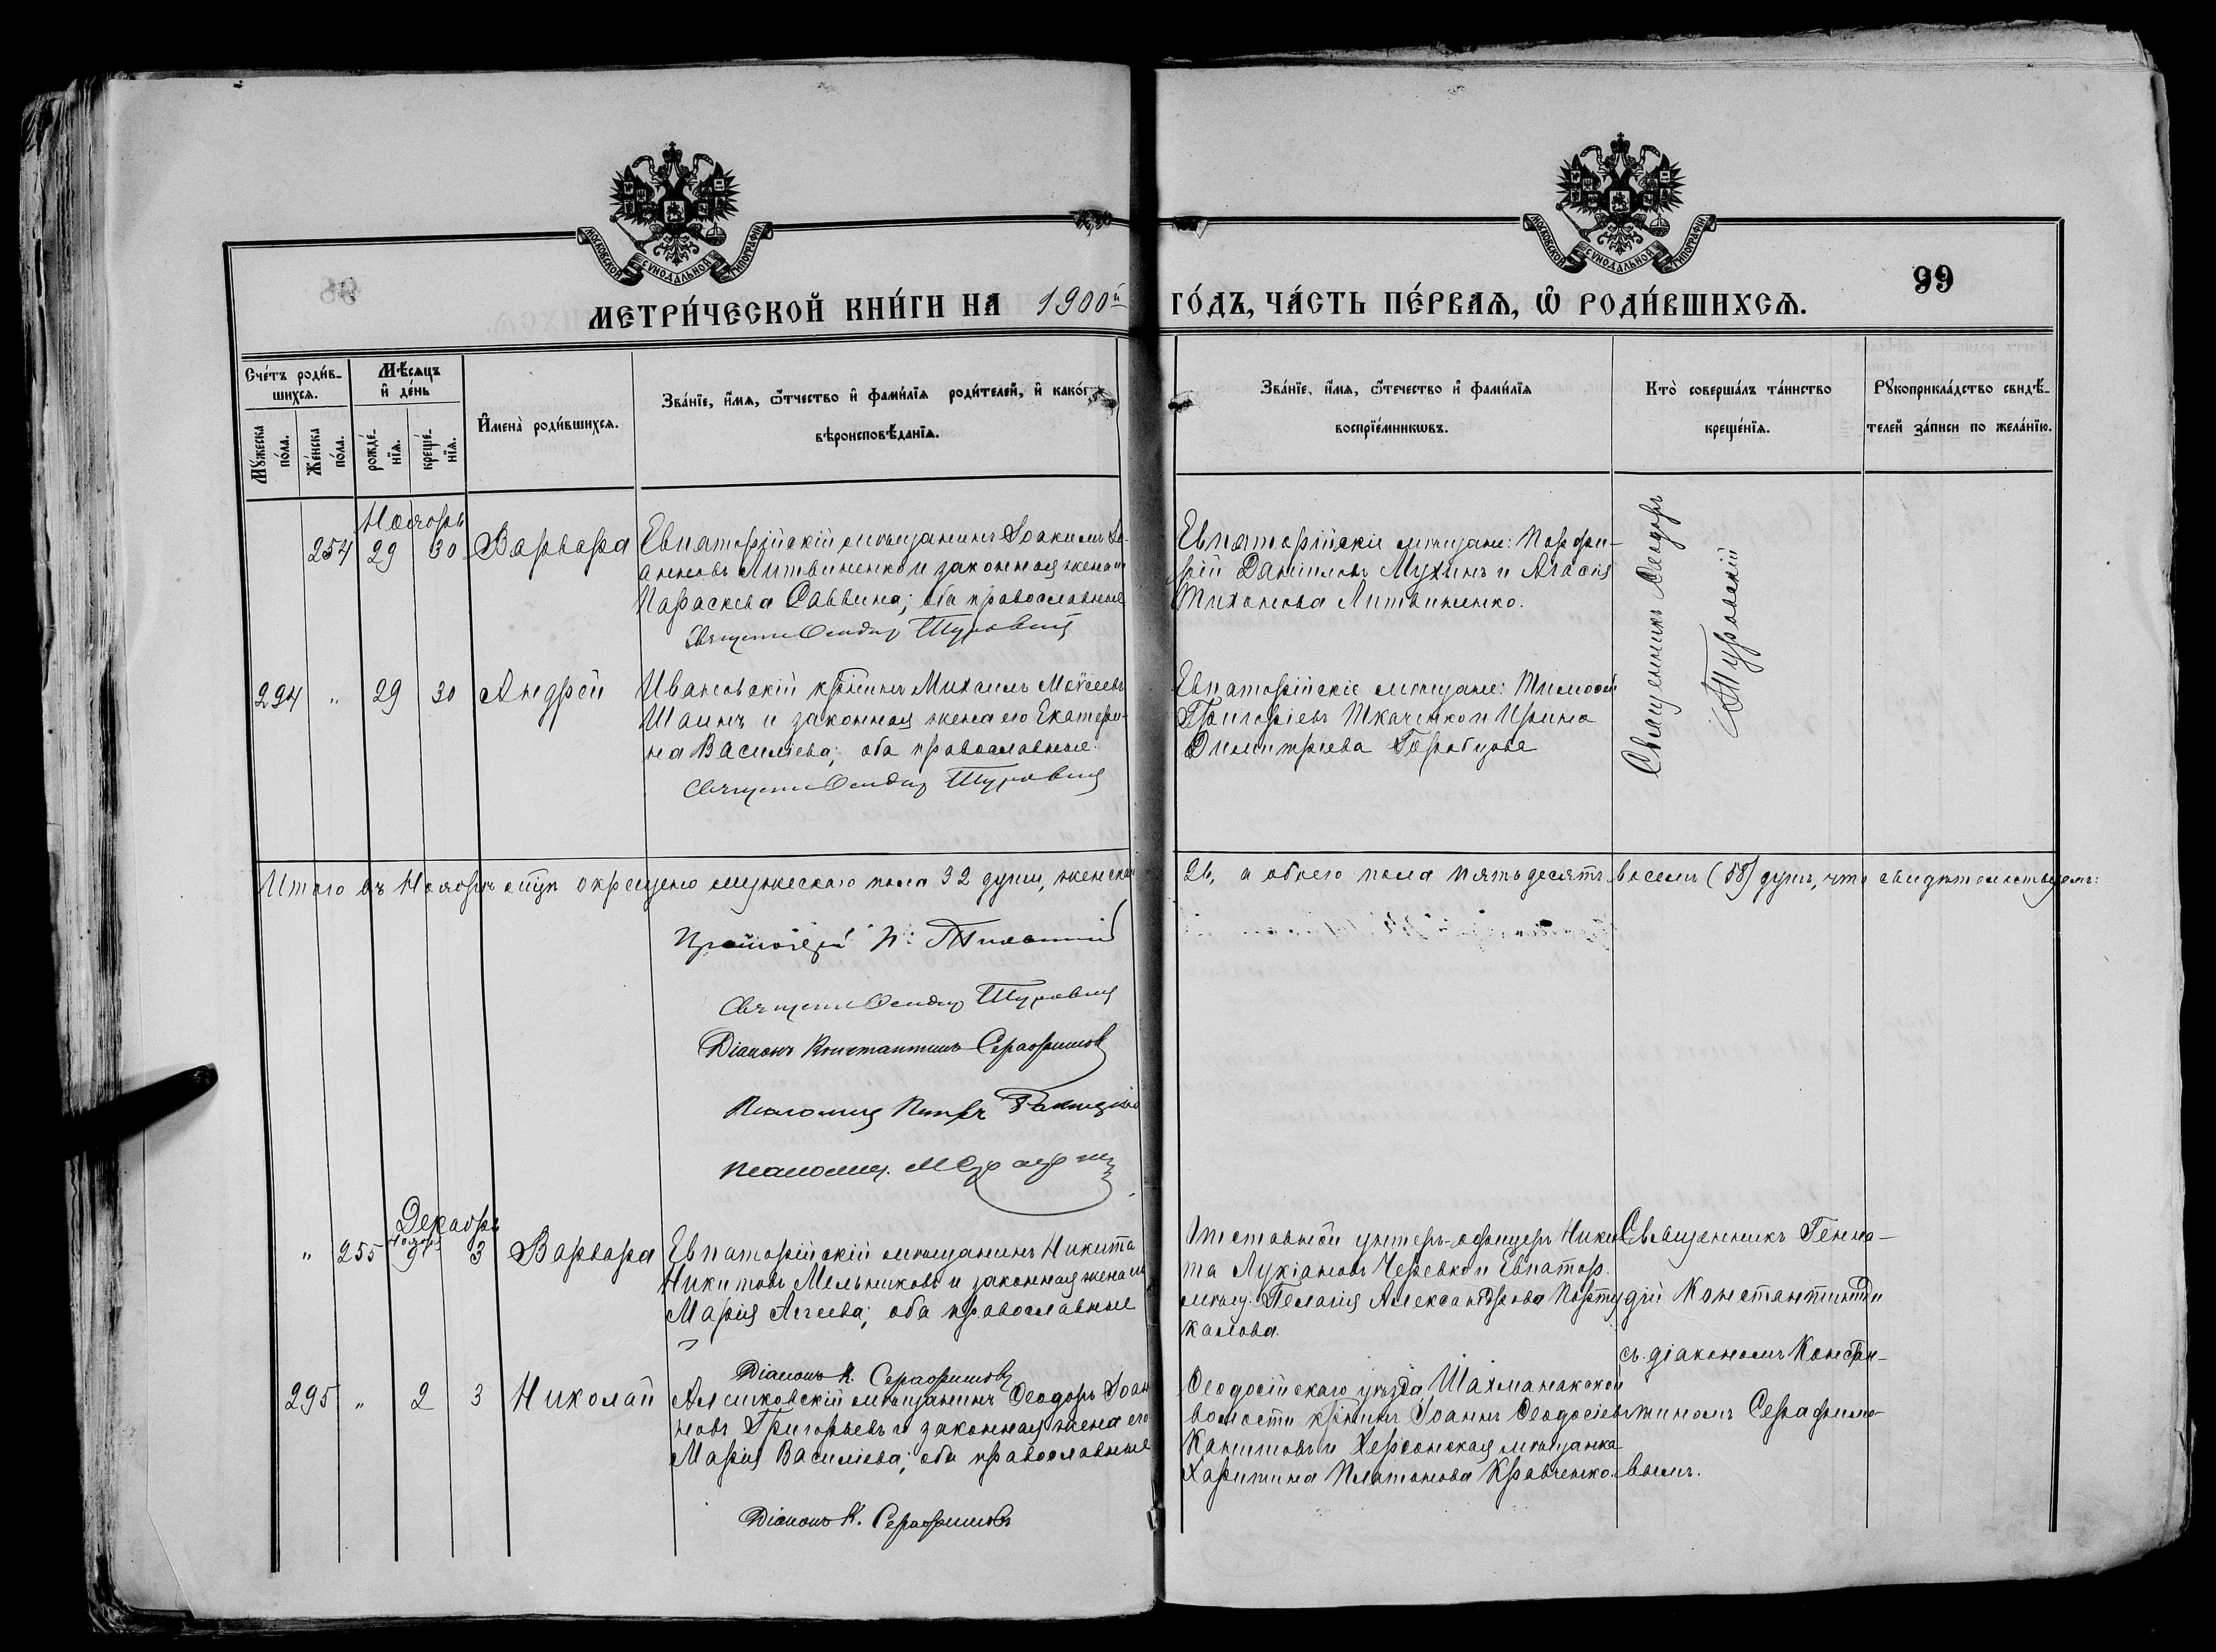 МОСКОВСКОЙ СѴНОДАЛЬНОЙ ТИПОГРАФІИ
МОСКОВСКОЙ СѴНОДАЛЬНОЙ ТИПОГРАФІИ
99
МЕТРИ́ЧЕСКОЙ КНИ́ГИ НА 1900й ГО́ДЪ, ЧА́СТЬ ПЕ́РВАѦ, Ѽ РОДИ́ВШИХСѦ.
Сче́тъ роди́в-
шихсѧ.
Мꙋ́жеска по́ла.
Же́нска по́ла.
Мѣ́сѧцъ
и҆ де́нь
рожде́-
нїѧ.
креще́-
нїѧ.
И҆мена̀ роди́вшихсѧ.
Зва́нїе, и҆́мѧ, ѻ҆́тчество и҆ фами́лїѧ роди́телей, и҆ како́гѡ
вѣроисповѣ́данїѧ.
Зва́нїе, и҆́мѧ, ѻ҆те́чество и҆ фами́лїѧ
воспрїе́мникѡвъ.
Кто̀ соверша́лъ та́инство
креще́нїѧ.
Рꙋкоприкла́дство свидѣ́-
телей за́писи по жела́нїю.
Ноябрь
254 29 30 Варвара
Евпаторійскій мѣщанинъ Іоакимъ Іо-
анновъ Литвиненко и законная жена его
Параскева Саввина; оба православные
Священ. Ѳеодор Туровскій
Евпаторійскіе мѣщане: Порфи-
рій Даніиловъ Мухинъ и Агаѳія
Тихонова Литвиненко.
Священникъ Ѳеодоръ
Туровскій
294 " 29 30 Андрей
Ивановскій кр-нинъ Михаилъ Моѵсеевъ
Шаинъ и законная жена его Екатери-
на Василіева; оба православные.
Священ. Ѳеодор Туровскій
Евпаторійскіе мѣщане: Тимоѳей
Григоріевъ Ткаченко и Ирина
Димитріева Горобцова
Итого въ Ноябрѣ мцѣ окрещено мужескаго пола 32 души, женскаго 26, а обоего пола пятьдесятъ восемь (58) душъ, что свидѣтельствуемъ:
Протоіерей
Священ. Ѳеодор Туровскій
Діаконъ Константинъ Серафимовъ
Псаломщ. Петръ
Псаломщ.
Декабрь
" 255 Нояб. 9 3 Варвара
Евпаторійскій мѣщанинъ Никита
Никитовъ Мельниковъ и законная жена его
Марія Аггеева; оба православные
Діаконъ К. Серафимовъ
Отставной унтеръ-офицеръ Ники-
та Лукіановъ Черевко и Евпатор.
мѣщ. Пелагія Александрова Порту-
калова.
Священникъ Генна-
дій Константиниди
съ діакономъ Констан-
тиномъ Серафимо-
вымъ.
295 " 2 3 Николай
Алешковскій мѣщанинъ Ѳеодоръ Іоан-
новъ Григорьевъ и законная жена его
Марія Василіева; оба православные
Діаконъ К. Серафимовъ
Ѳеодосійскаго уѣзда Шахманакской
волости кр-нинъ Іоаннъ Ѳеодосіевъ
и Херсонская мѣщанка
Харитина Платонова Кравченко.